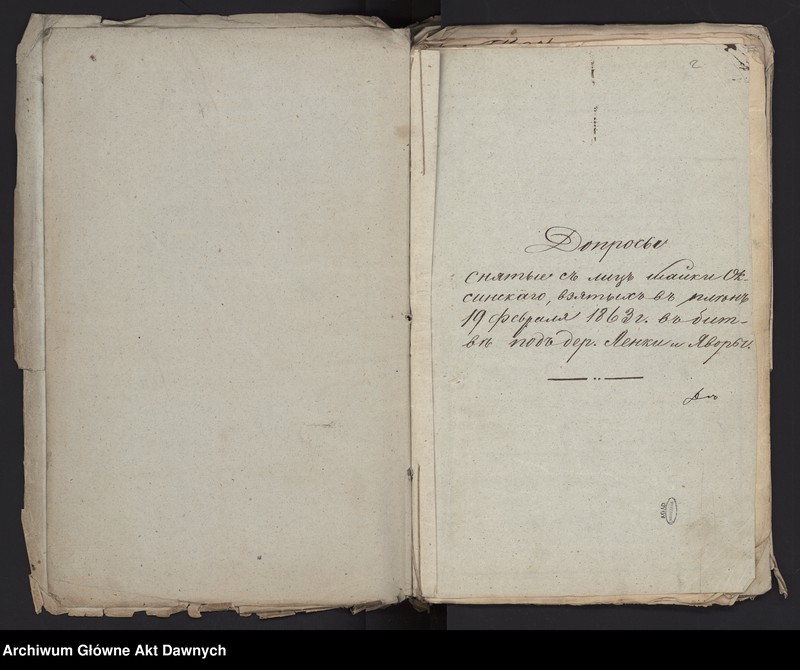 2
Допросы
снятые съ лицъ шайки Ок-
синскаго, взятыхъ въ плѣнъ
19 Февраля 1863 г. въ бит-
вѣ подъ дер. Ленки и Яворы.
Archiwum Główne Akt Dawnych